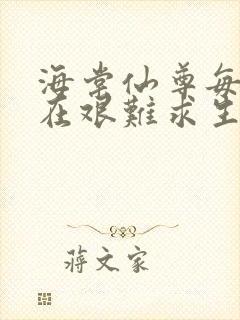 海棠仙尊每
在艰難求生
蔣文家